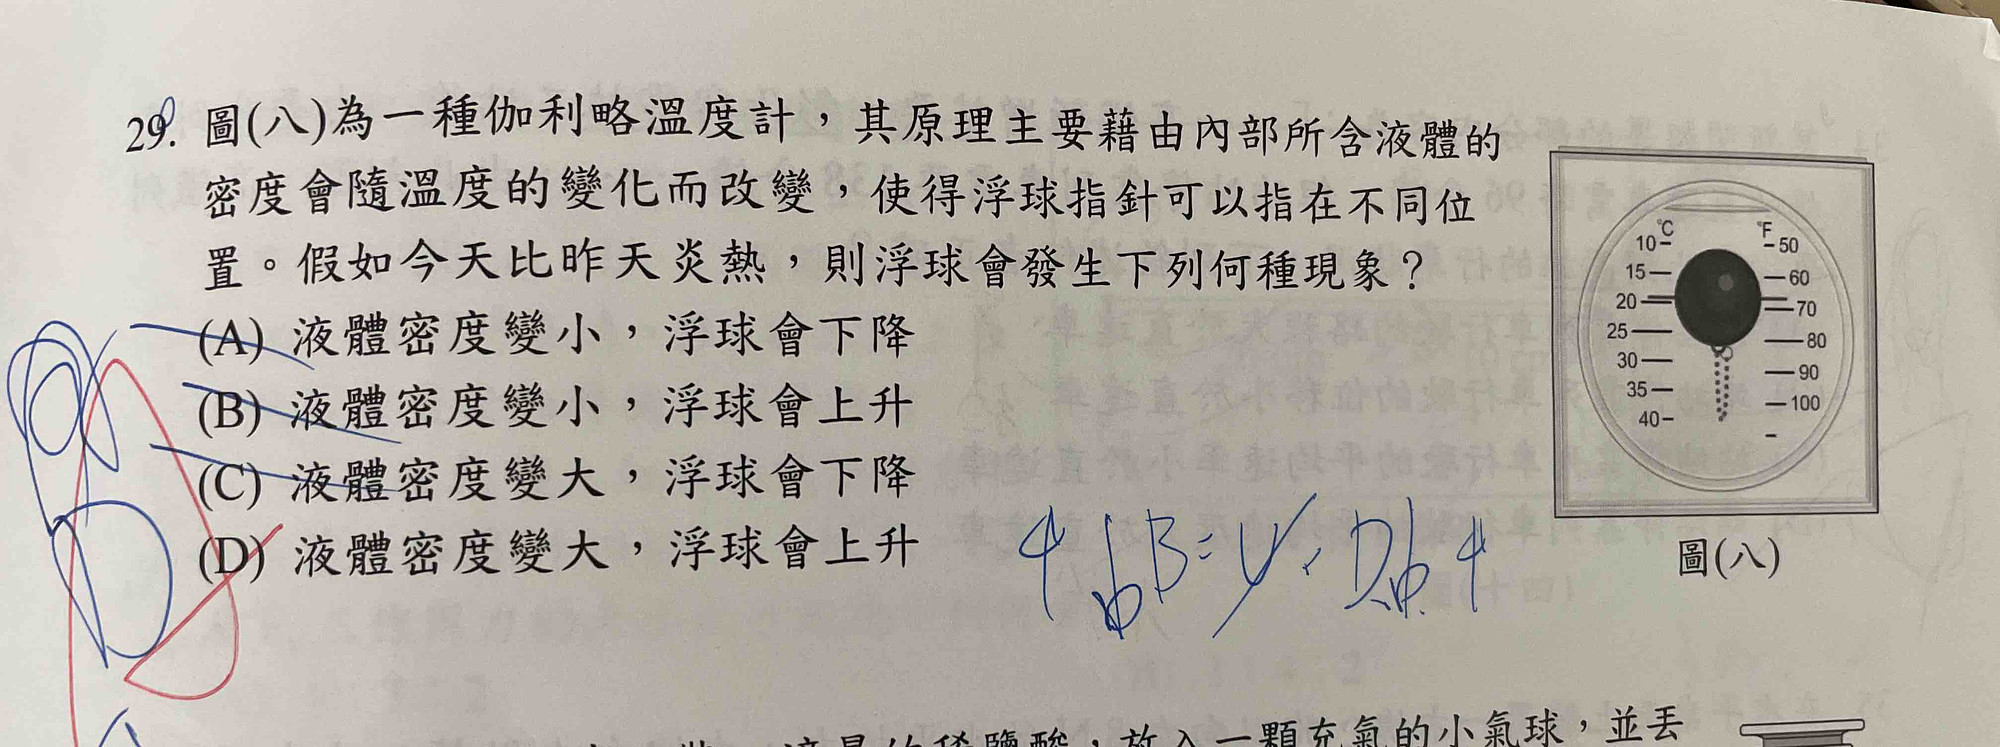 29. 圖(八)為一種伽利略溫度計，其原理主要藉由內部所含液體的
密度會隨溫度的變化而改變，使得浮球指針可以指在不同位
置。假如今天比昨天炎熱，則浮球會發生下列何種現象？
(A) 液體密度變小，浮球會下降
(B) 液體密度變小，浮球會上升
(C) 液體密度變大，浮球會下降
(D) 液體密度變大，浮球會上升
°C °F
10 50
15 60
20 70
25 80
30 90
35 100
40
圖(八)
放入一顆充氣的小氣球，並丟